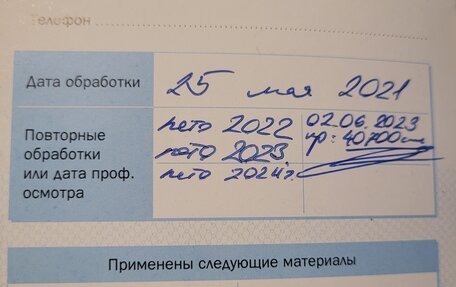 Телефон
Дата обработки 25 мая 2021
Повторные обработки или дата проф. осмотра
лето 2022
лето 2023
лето 2024 г.
02.06.2023
пр: 40700 км
Применены следующие материалы